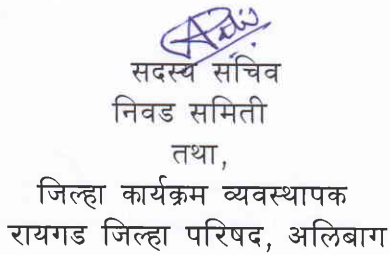 सदस्य सचिव
निवड समिती
तथा,
जिल्हा कार्यक्रम व्यवस्थापक
रायगड जिल्हा परिषद, अलिबाग